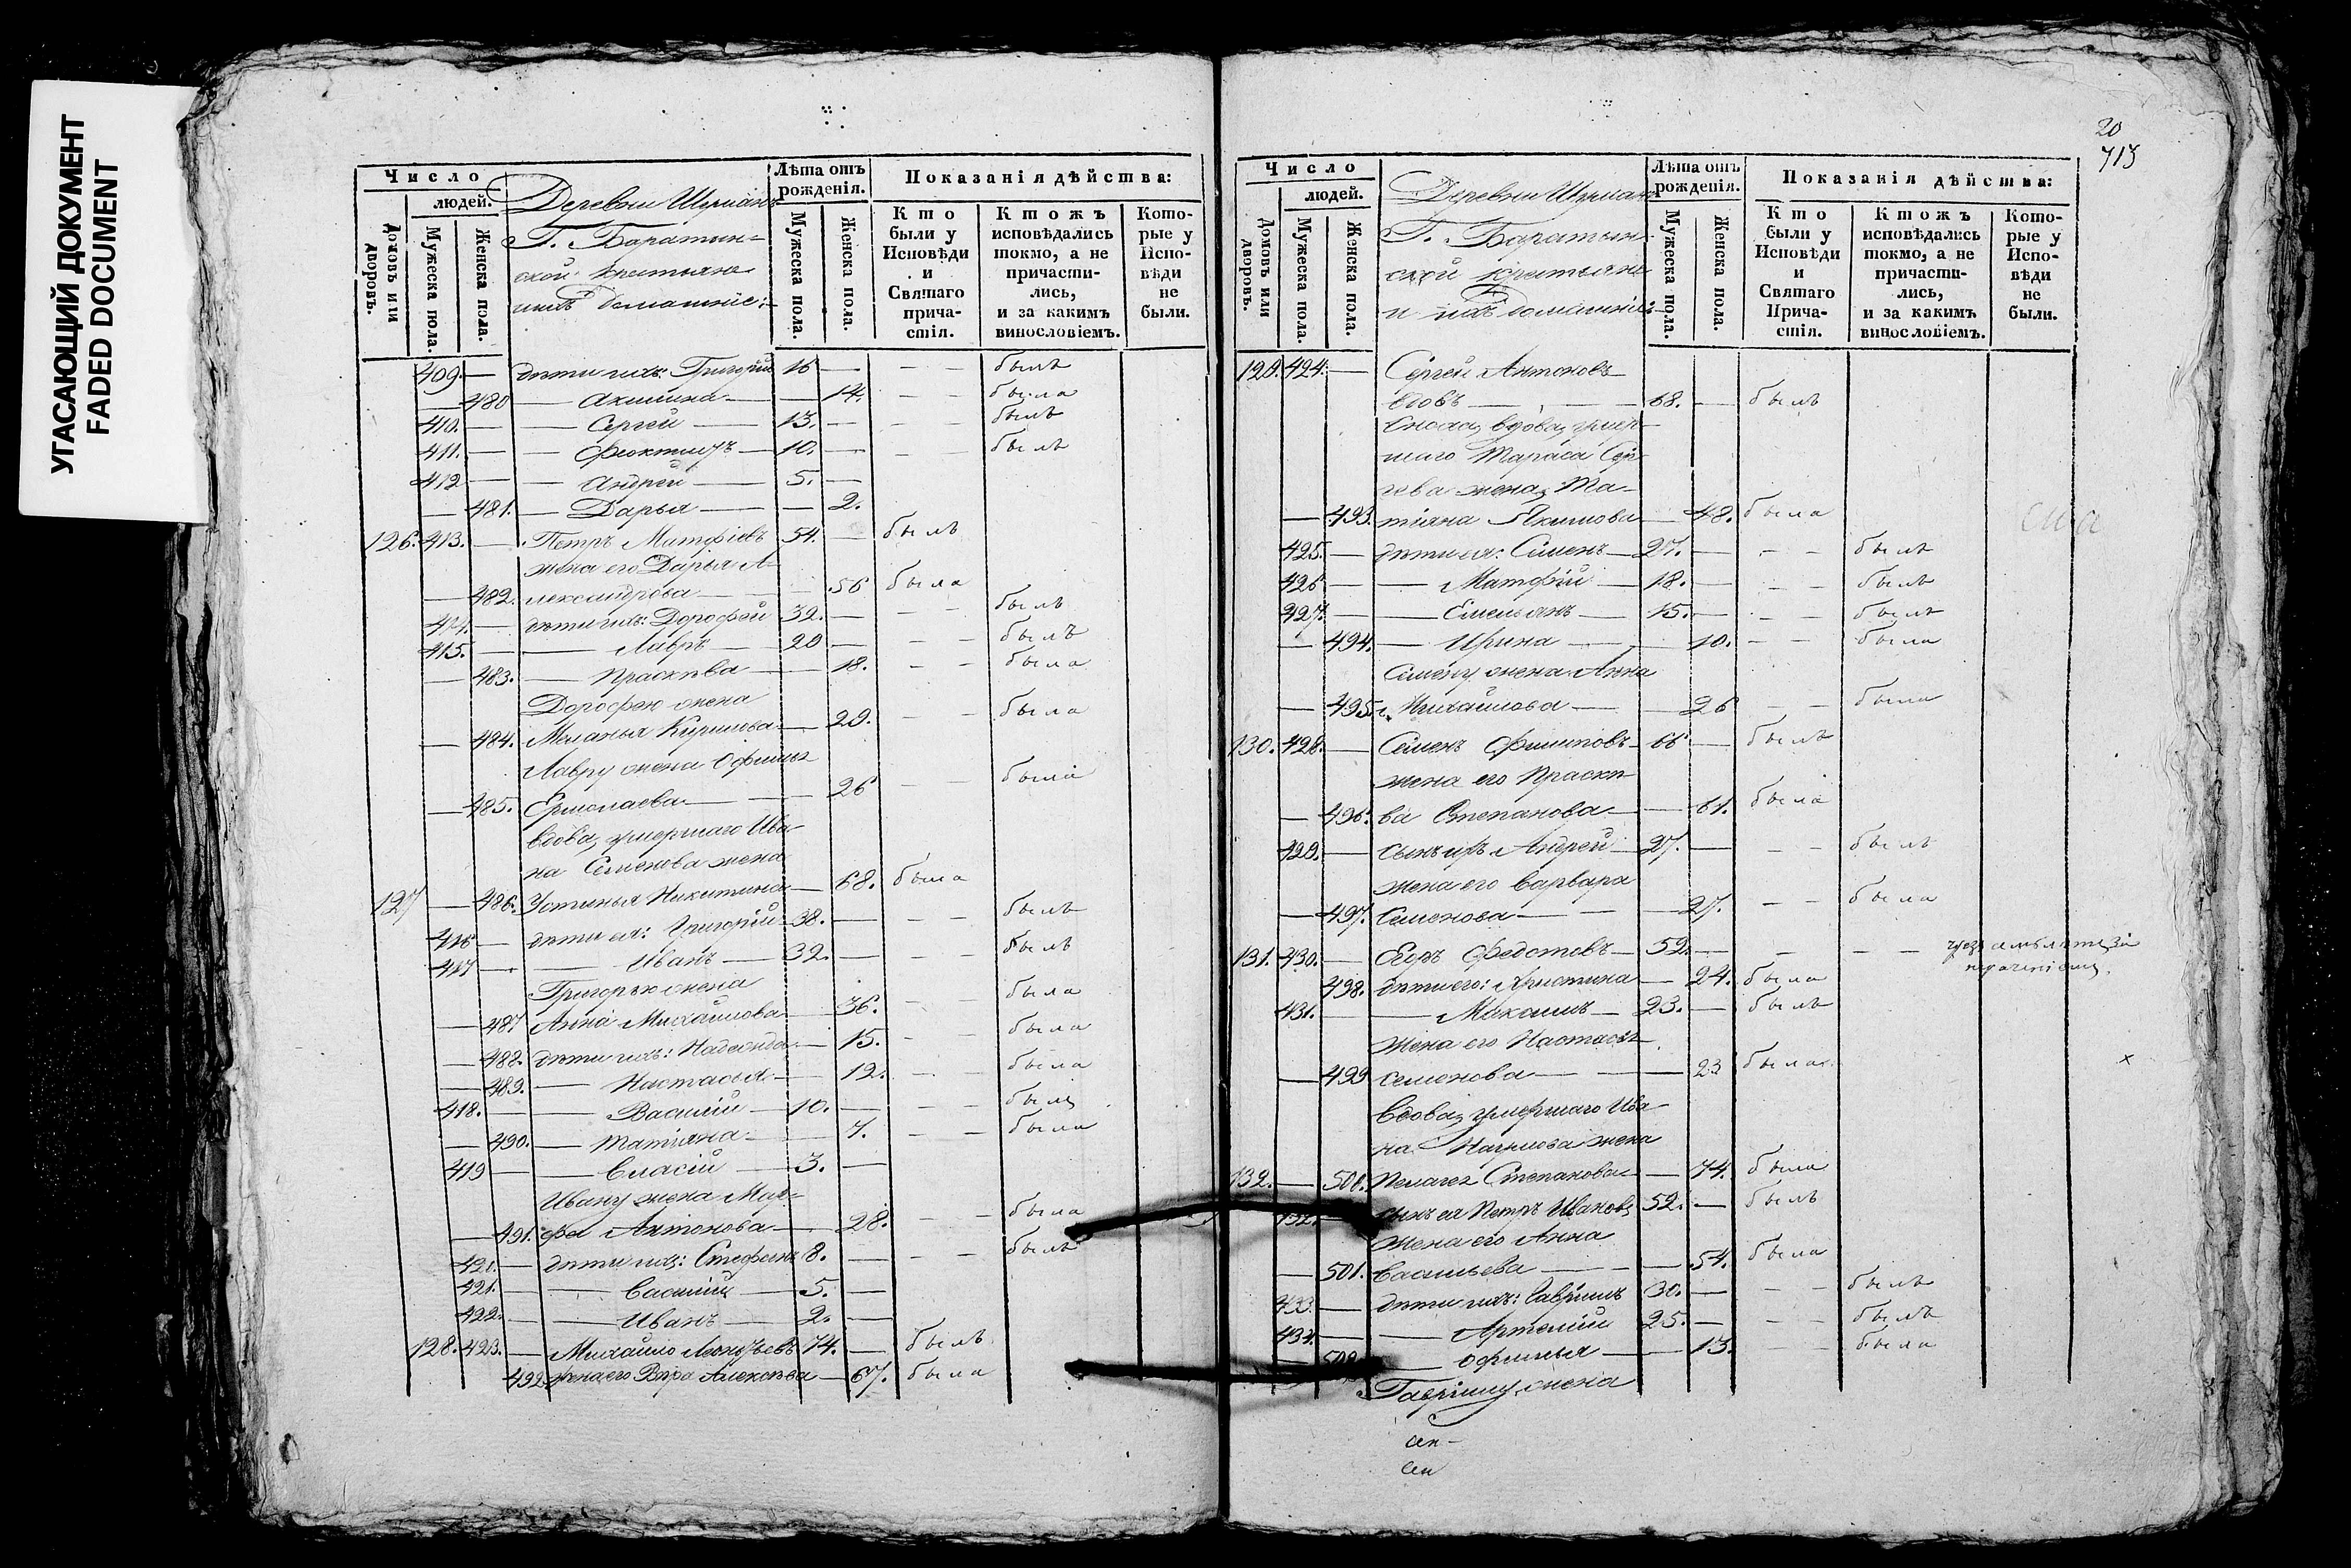 УГАСАЮЩИЙ ДОКУМЕНТ
FADED DOCUMENT
Число
людей.
Домовъ или дворовъ.
Мужеска пола.
Женска пола.
Деревни
Г. Баратин-
ской крестьяне
ихъ домашніе:
Лѣта отъ рожденія.
Мужеска пола.
Женска пола.
Показанія дѣйства:
Кто были у Исповѣди и Святаго причастія.
Ктожъ исповѣдались токмо, а не причастились, и за какимъ винословіемъ.
Которые у Исповѣди не были.
409. — дѣти ихъ: Григорій 16 — — — былъ
— 480 — Акилина — — 14. — — была
410. — — Сергей — 13. — — — былъ
411. — — Феоктистъ — 10. — — — былъ
412 — — Андрей — 5. —
— 481. — Дарья — — 2.
126. 413. — Петръ Матфіевъ 54. — былъ
жена его Дарья А-
— 482. лександрова — — 56 была
414. — дѣти ихъ: Дорофей 32. — — — былъ
415. — — Лавръ — 20 — — — былъ
— 483. — Прасковa — — 18. — — была
Дорофею жена
— 484. Меланья Кирилова — 29. — — была
Лавру жена Офимья
— 485. Ермолаева — — 26 — — была
вдова, умершаго Ива-
на Семенова жена
127 — 486. Устинья Никитина — 68. была
416 — дѣти ея: Григорій 38. — — — былъ
417 — — Иванъ — 32. — — — былъ
Григорью жена
— 487 Анна Михайлова — 36. — — была
— 488. дѣти ихъ: Надежда — 15. — была
— 489. — Настасья — 12. — — была
418. — — Василій — 10. — — — былъ
— 490. — Татіяна — 7. — — была
419 — — Власій — 3. —
Ивану жена Мар-
— 491. фа Антонова — 28. — — была
420. — дѣти ихъ: Стефанъ 8. — — — былъ
421. — — Василій — 5. —
422. — — Иванъ — 2. —
128. 423. — Михайло 74. — былъ
492. жена его Вѣра Алексѣева — 67. была
20
713
Число
людей.
Домовъ или дворовъ.
Мужеска пола.
Женска пола.
Деревни
Г. Баратын-
ской крестьяне
и ихъ домашніе:
Лѣта отъ рожденія.
Мужеска пола.
Женска пола.
Показанія дѣйства:
Кто были у Исповѣди и Святаго Причастія.
Ктожъ исповѣдались токмо, а не причастились, и за какимъ винословіемъ.
Которые у Исповѣди не были.
129. 424. — Сергей Антоновъ
вдовъ — — 68. — былъ
Сноха, вдова, умер-
шаго Тараса Сер-
гева жена, Та-
— 493. тіяна Якимова — 48. была
425. — дѣти ея: Семенъ — 27. — — — былъ
426 — — Матфій — 18. — — — былъ
427. — — Емельянъ — 15. — — — былъ
— 494. — Ирина — — 10. — — была
Семену жена Анна
— 495. Михайлова — — 26 — — была
130. 428. — Семенъ Филиповъ — 66 — былъ
жена его Праско-
— 496. ва Степанова — — 61. была
429. — сынъ ихъ Андрей — 27. — — — былъ
жена его Варвара
— 497. Семенова — — 27. — — была
131. 430. — Егоръ Федотовъ — 52. — — — —
498. дѣти его: Христина — 24. была
431. — — Максимъ — 23. — былъ
жена его Настасья
— 499 семенова — — 23 была
Вдова, умершаго Ива-
на Наумова жена
132. — 500. Пелагея Степанова — 74. была
432. — сынъ ея Петръ Ивановъ 52. — былъ
жена его Анна
— 501. Васильева — — 54. была
433. — дѣти ихъ: Гаврiилъ 30. — — — былъ
434. — — Артемій 25. — — — былъ
— 502. — Офимья — — 13. — была
Гаврiилу жена